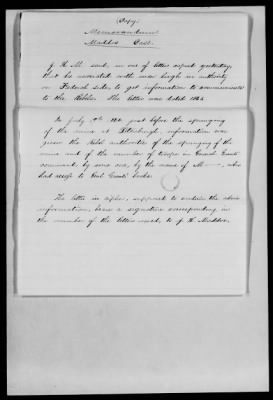 (Copy)
Memorandum
Maddox Case.
J. H. M. said, in one of letters copied yesterday,
that he associated with men high in authority
on Federal side, to get information to communicate
to the Rebels. The letter was dated 1863.
In July 1864 just before the springing
of the mine at Petersburgh, information was
given the Rebel authorities of the springing of the
mine and of the number of troops in General Grant's
command, by some one, by the name of M——, who
had access to Genl Grant's
The letter in cipher, supposed to contain the above
information, bears a signature corresponding in
the number of the letters used, to J. H. Maddox.